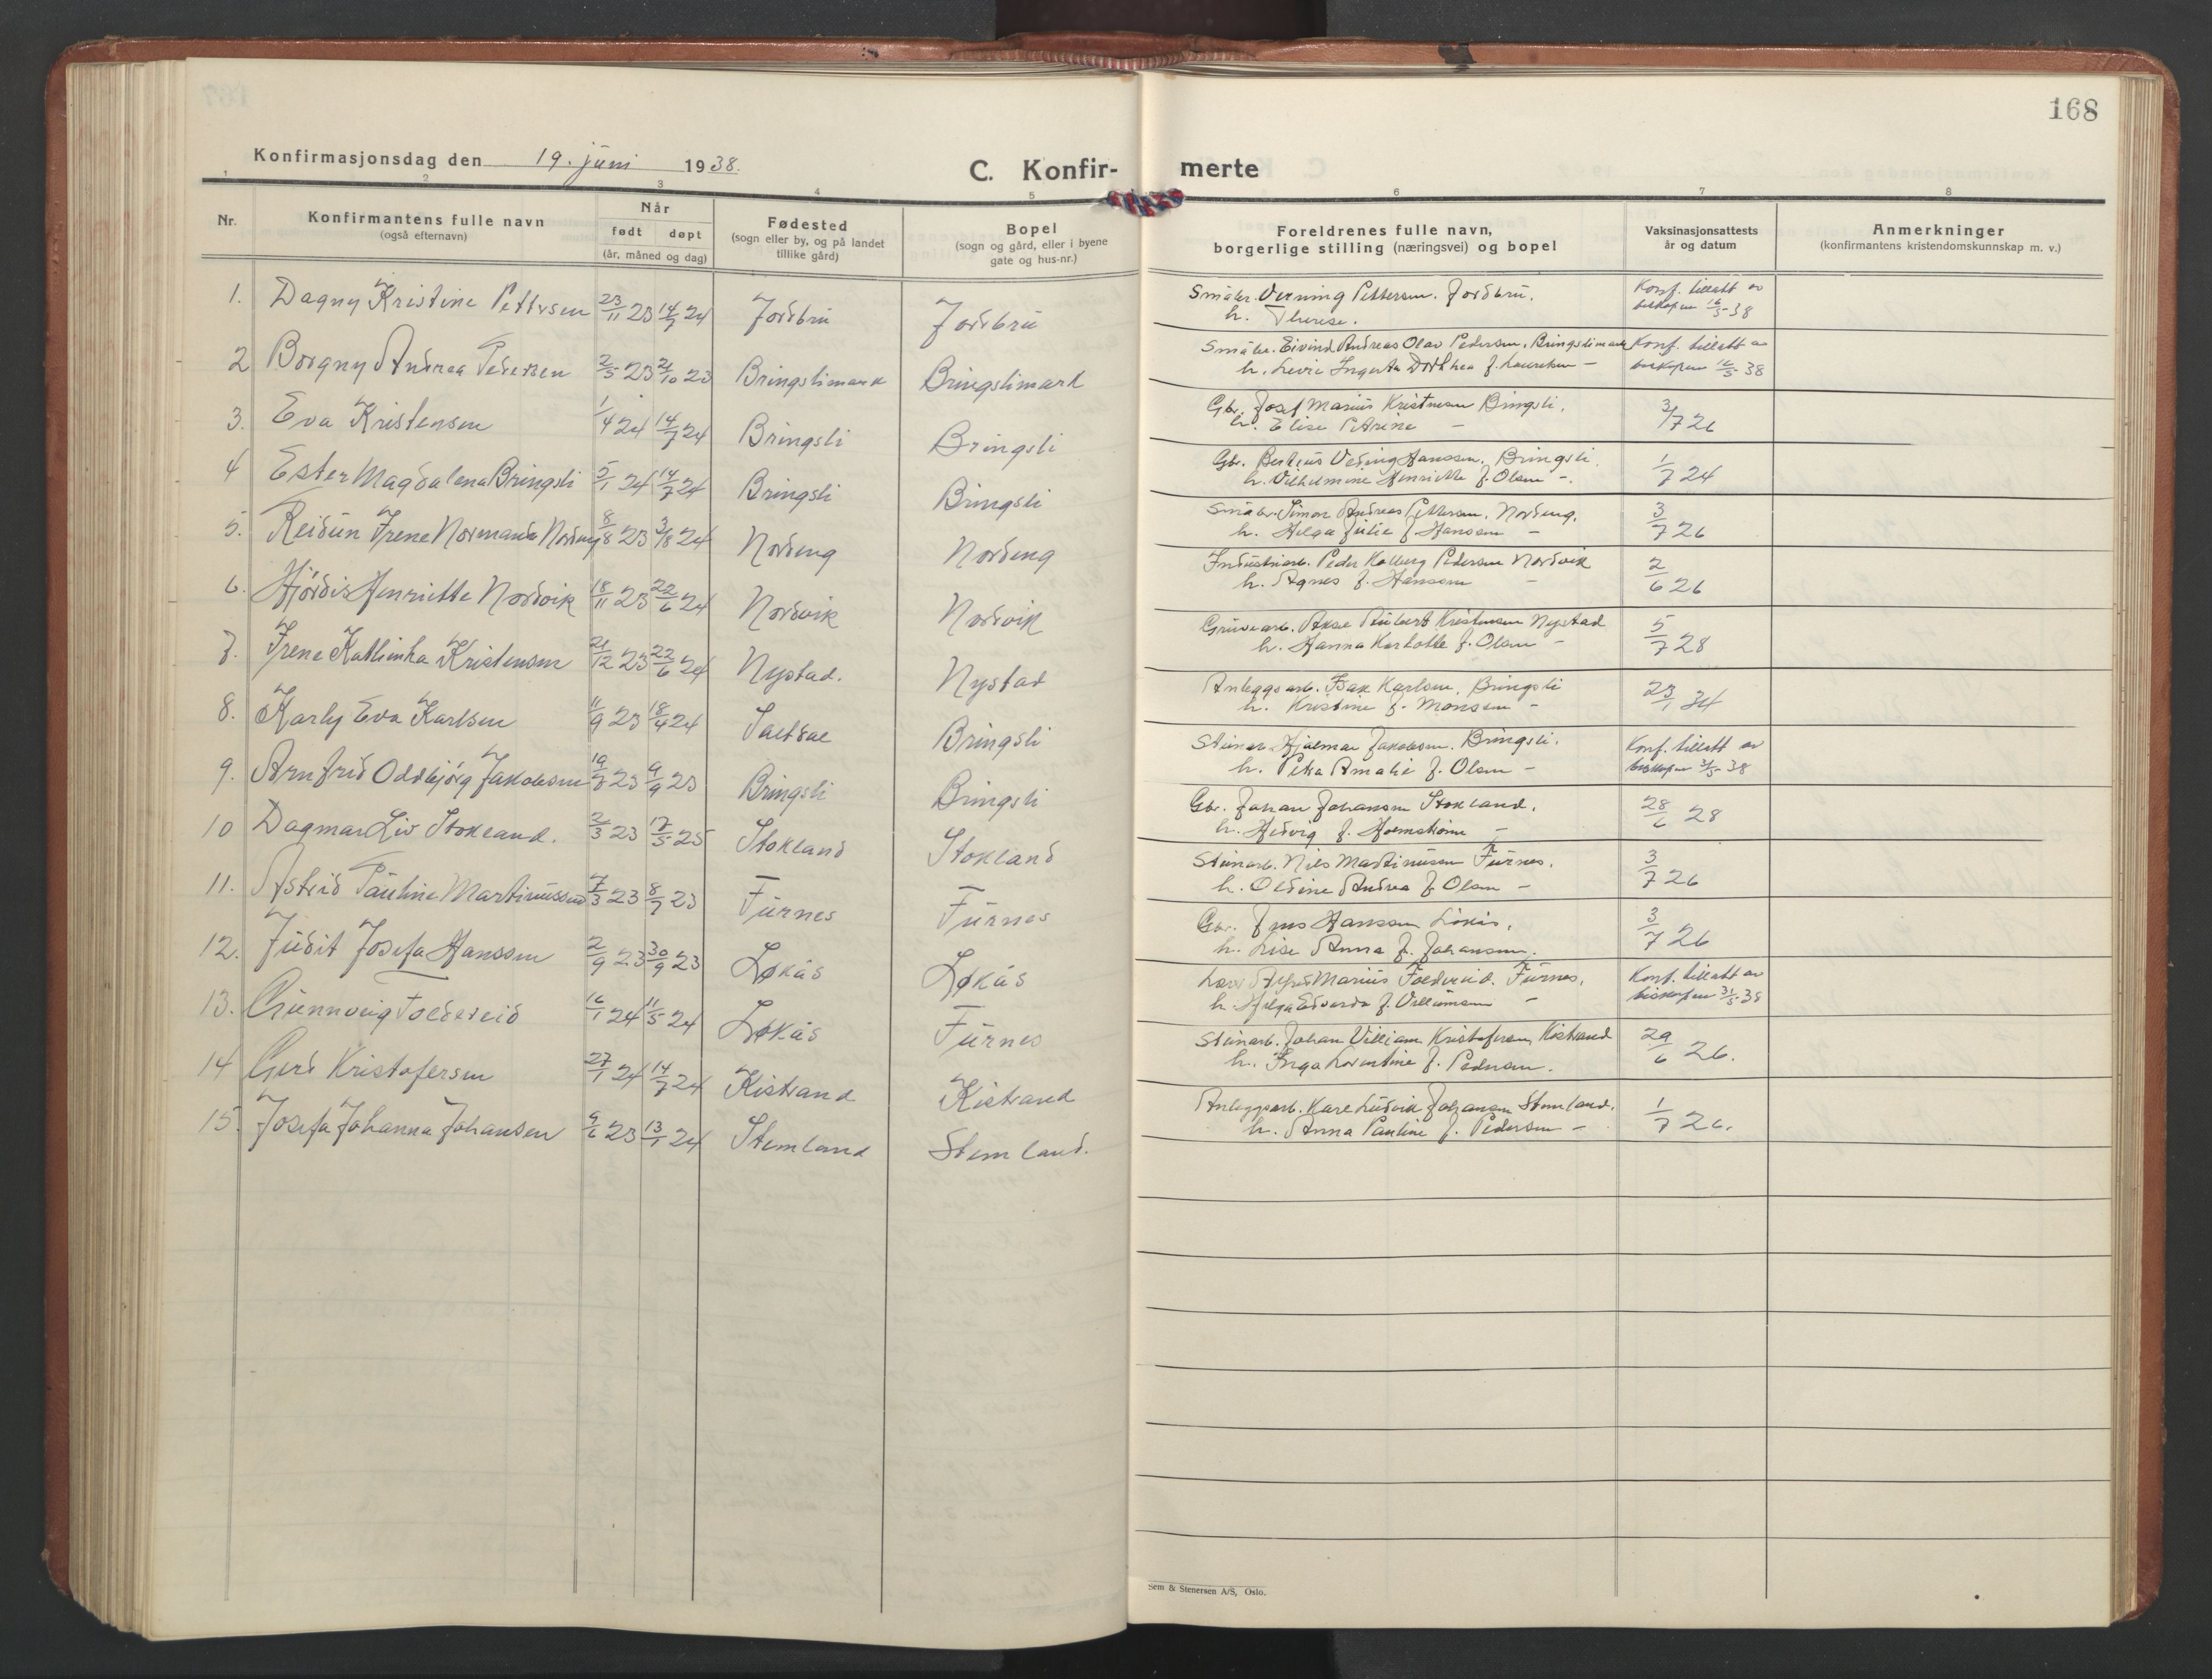 168
Konfirmasjonsdag den 19. juni 1938.
C. Konfir- merte
1 2 3 4 5 6 7 8
Nr.
Konfirmantens fulle navn
(også efternavn)
Når
født døpt
(år, måned og dag)
Fødested
(sogn eller by, og på landet
tillike gård)
Bopel
(sogn og gård, eller i byene
gate og hus-nr.)
Foreldrenes fulle navn,
borgerlige stilling (næringsvei) og bopel
Vaksinasjonsattests
år og datum
Anmerkninger
(konfirmantens kristendomskunnskap m. v.)
1. Dagny Kristine Pettersen 23/11 23 14/7 24 Jordbru Jordbru
Småbr. Verning Pettersen. Jordbru.
h. Therese.
Konf. tillatt av
biskopen 16/5 38
2 Borgny Andrea Pedersen 2/5 23 21/10 23 Bringslimark Bringslimark
Småbr. Eivind Andreas Olav Pedersen, Bringslimark
h. Ingerta Dorthea f. Lauritsen –
Konf. tillatt av
biskopen 16/5 38
3. Eva Kristensen 1/4 24 14/7 24 Bringsli Bringsli
Gbr. Josef Marius Kristensen Bringsli.
h. Elise Petrine –
3/7 26
4 Ester Magdalena Bringsli 5/1 24 14/7 24 Bringsli Bringsli
Gbr. Hanssen, Bringsli.
h. Vilhelmine Henrikke f. Olsen –.
1/7 24
5. Reidun Irene Normanda Nordeng 8/8 23 3/8 24 Nordeng Nordeng
Småbr. Simon Andreas Pettersen, Nordeng.
h. Helga Julie f. Hanssen –
3/7 26
6. Hjørdis Henriette Nordvik 18/11 23 22/6 24 Nordvik Nordvik
Industriarb. Peder Kolberg Pedersen Nordvik
h. Agnes f. Hanssen –
2/6 26
7. Irene Kathinka Kristensen 21/12 23 22/6 24 Nystad. Nystad
Gruvearb. Kristensen Nystad
h. Hanna Karlotte f. Olsen –
5/7 28
8. Karly Eva Karlsen 11/9 23 18/4 24 Saltdal Bringsli
Anleggsarb. Isak Karlsen, Bringsli
h. Kristine f. Monssen –
23/1 34
9. Arnfrid Oddbjørg Jakobsen 19/7 23 9/9 23 Bringsli Bringsli
Steinar. Hjalmar Jakobsen. Bringsli.
h. Petra Amalie f. Olsen –
Konf. tillatt av
biskopen 31/5 38
10 Dagmar Liv Stokland. 2/3 23 17/5 25 Stokland Stokland
Gbr. Johan Johansen Stokland.
h. Hedvig f. Holmstrøm –
28/6 28
11. Astrid Pauline Martinussen 7/3 23 8/7 23 Furnes Furnes
Steinarb. Nils Martinussen Furnes.
h. Oldine Andrea f. Olsen –
3/7 26
12. Judit Josefa Hanssen 2/9 23 30/9 23 Løkås Løkås
Gbr. Jens Hanssen Løkås.
h. Lise Anna f. Johansen.
3/7 26
13. Gunnveig Foldereid 16/1 24 11/5 24 Løkås Furnes
Alfred Marius Foldereid. Furnes.
h. Helga Edvarda f. Villumsen –
Konf. tillatt av
biskopen 31/5 38
14 Gerd Kristofersen 27/1 24 14/7 24 Kistrand Kistrand
Steinarb. Johan Villiam Kristofersen, Kistrand
h. Inga Lorentine f. Pedersen.
29/6 26.
15. Josefa Johanna Johansen 9/6 23 13/1 24 Stemland Stemland.
Anleggsarb. Karl Ludvik Johansen Stemland.
h. Anna Pauline f. Pedersen –
1/7 26.
Sem & Stenersen A/S, Oslo.